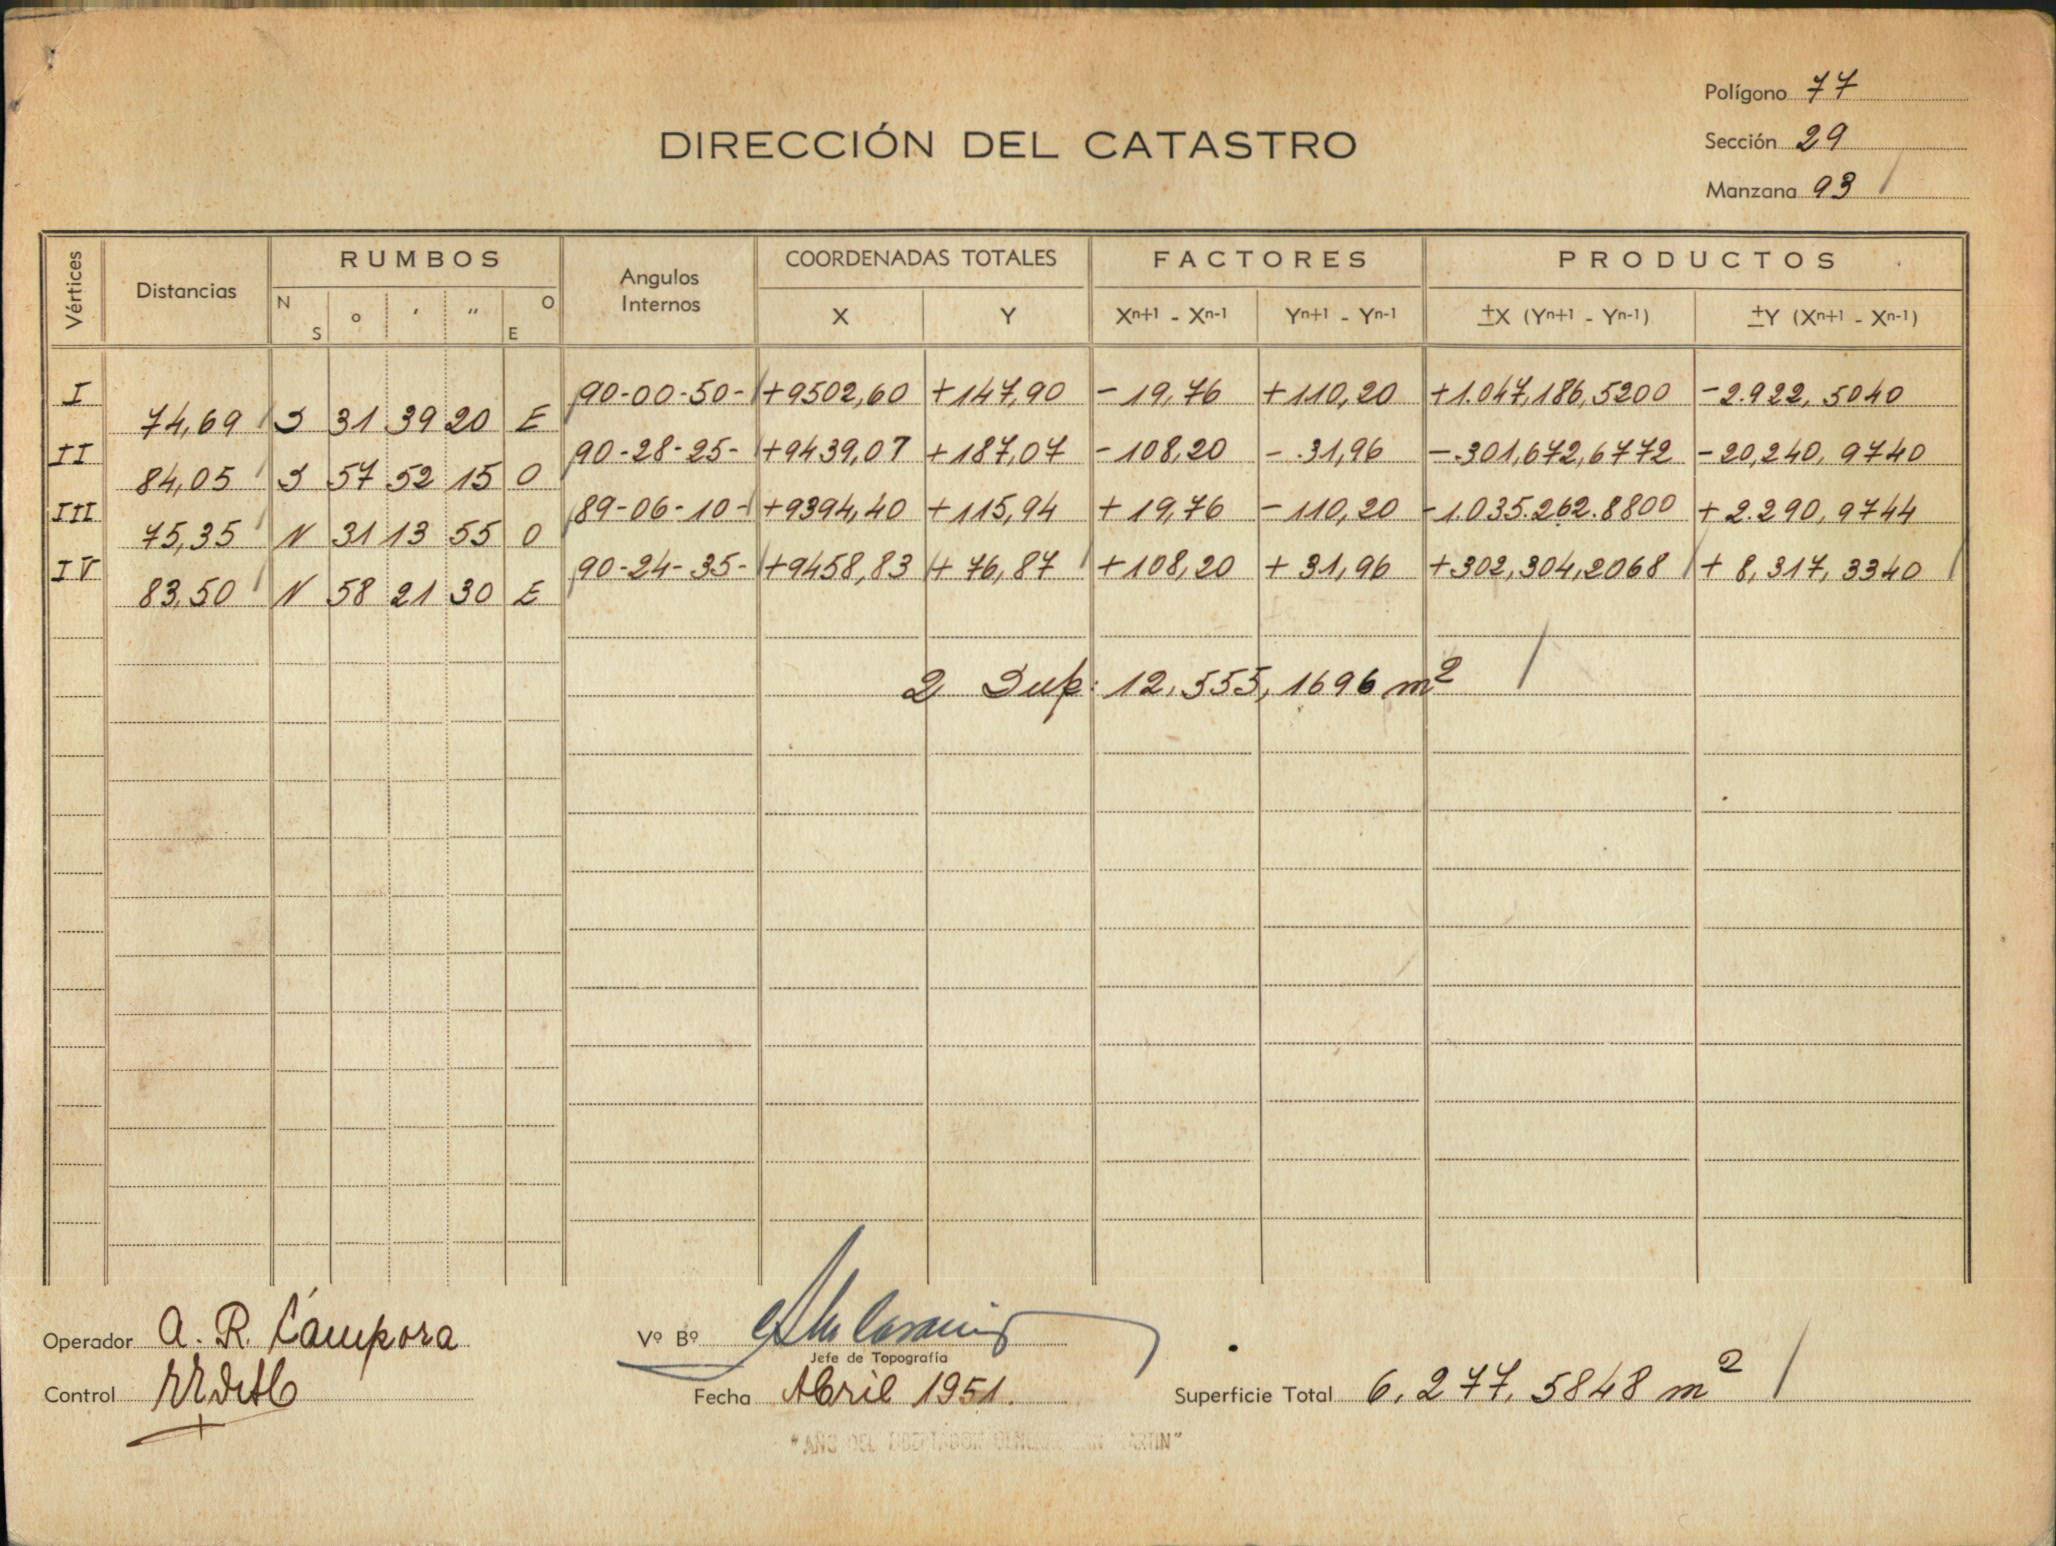 Polígono 77
DIRECCIÓN DEL CATASTRO
Sección 29
Manzana 93
Vértices Distancias RUMBOS Angulos Internos COORDENADAS TOTALES FACTORES PRODUCTOS
N S ° ' " O E X Y Xn+1 - Xn-1 Yn+1 - Yn-1 ±X (Yn+1 - Yn-1) ±Y (Xn+1 - Xn-1)
I 90-00-50- +9502,60 +147,90 -19,76 +110,20 +1.047,186,5200 -2.922,5040
74,69 S 31 39 20 E
II 90-28-25- +9439,07 +187,07 -108,20 -31,96 -301,672,6772 -20,240,9740
84,05 S 57 52 15 O
III 89-06-10- +9394,40 +115,94 +19,76 -110,20 -1.035.262.8800 +2.290,9744
75,35 N 31 13 55 O
IV 90-24-35- +9458,83 +76,87 +108,20 +31,96 +302,304,2068 +8,317,3340
83,50 N 58 21 30 E
2 Sup: 12.555,1696 m2
Operador A. R. Cámpora
Vº Bº
Jefe de Topografía
Control
Fecha Abril 1951.
Superficie Total 6.277,5848 m2
"AÑO DEL LIBERTADOR GENERAL SAN MARTIN"